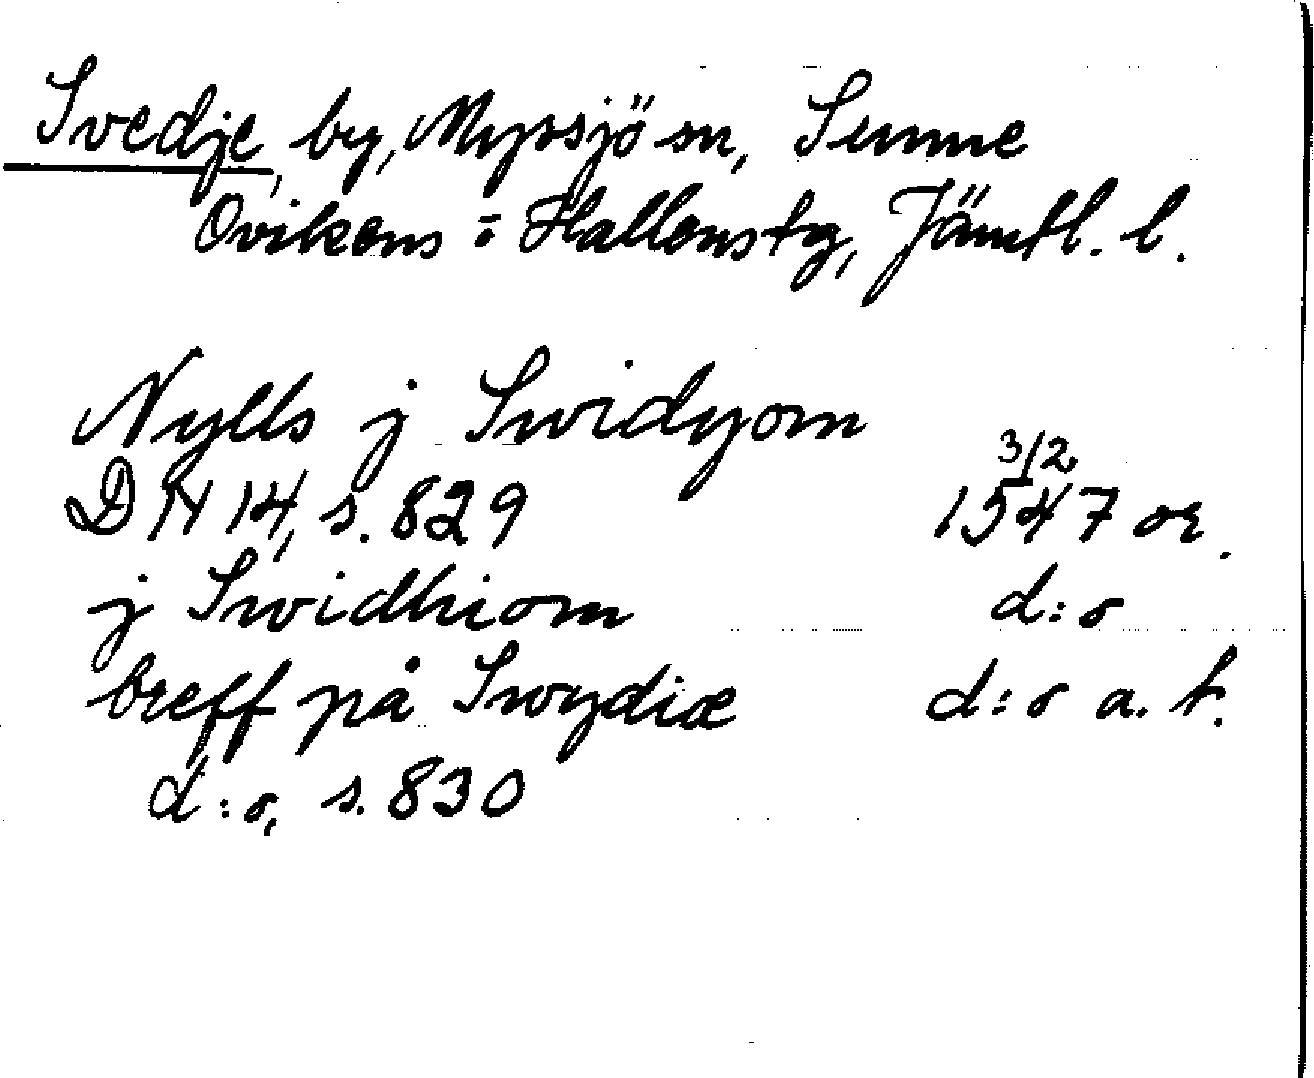 Svedje, by, Myssjö sn, Sunne
Ovikens o Hallens tg, Jämtl. l.
Nylls j Swidyom
3/2
DN 14, s. 829 1547 or.
j Swidhiom d:o
breff på Swydiæ d:o a. t.
d:o, s. 830